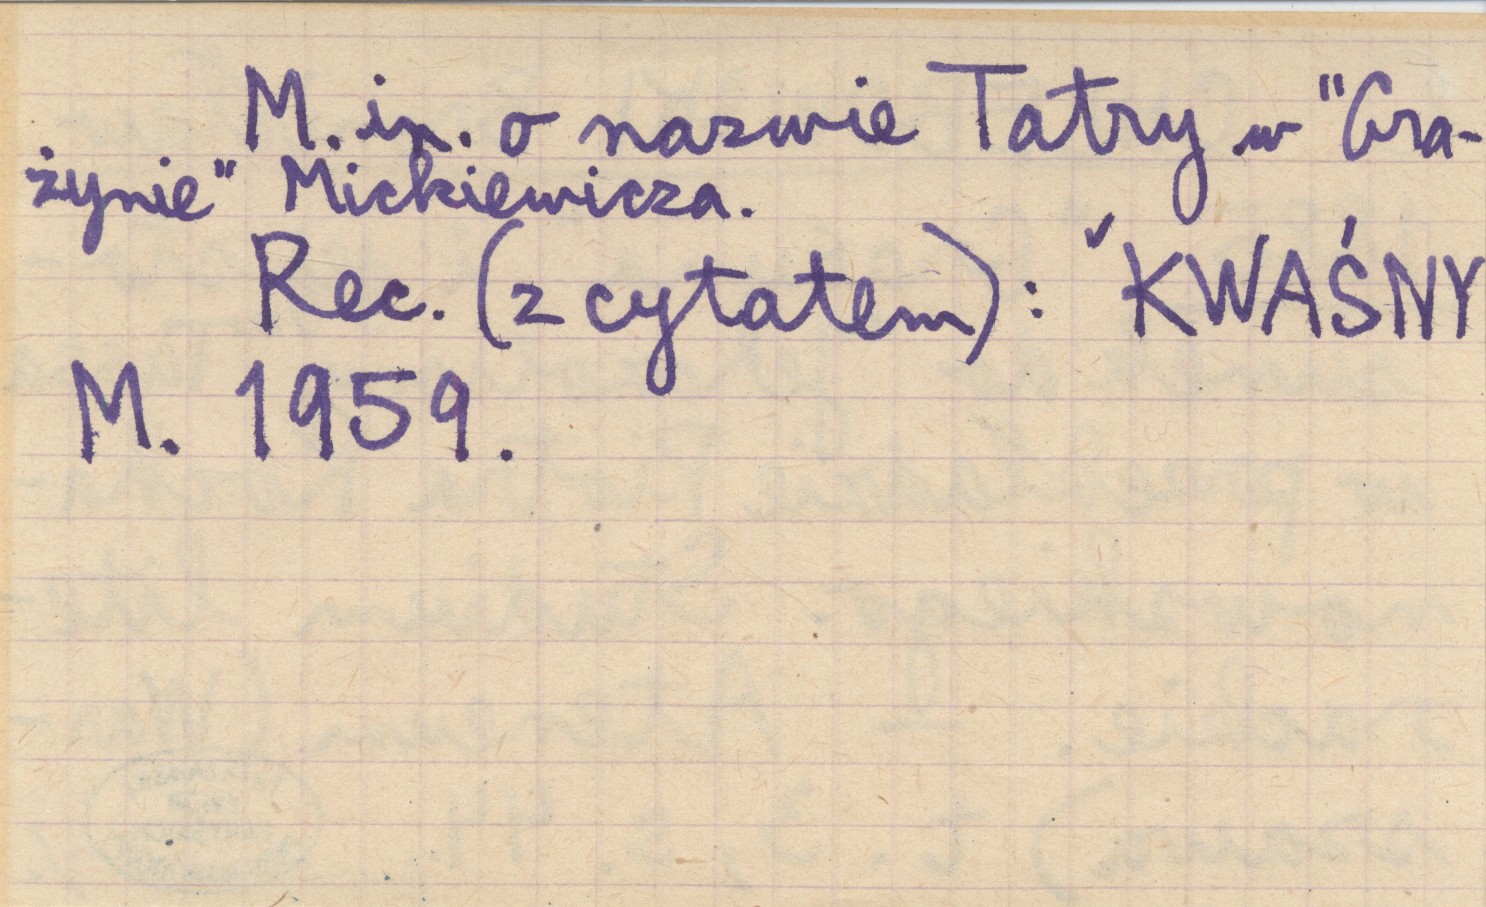 M. in. o nazwie Tatry w "Gra-
żynie" Mickiewicza.
Rec. (z cytatem): ✓KWAŚNY
M. 1959.